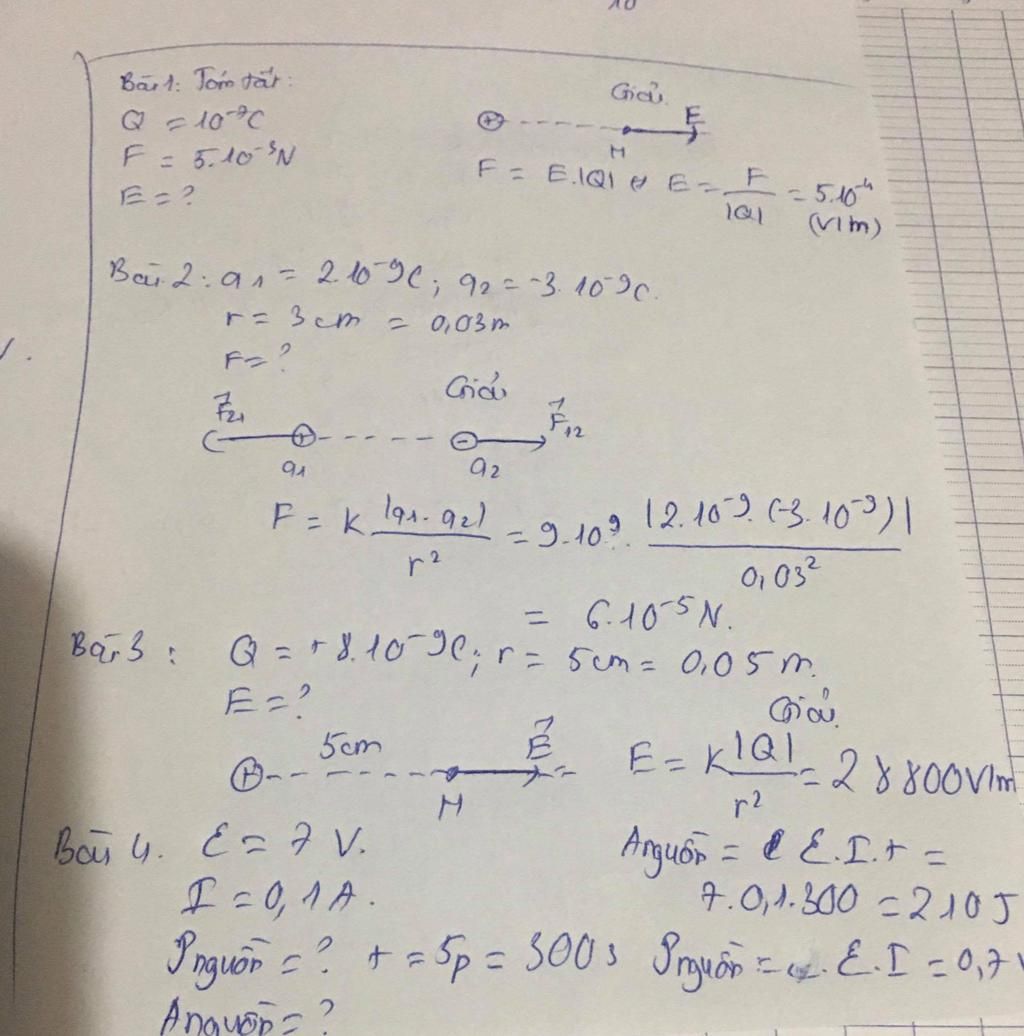 10
Bài 1: Tóm tắt:
Q = 10⁻⁷C
F = 5.10⁻³N
E = ?
Giải
⊕ M E
F = E.|Q| ⇔ E = F/|Q| = 5.10⁻⁴ (V/m)
Bài 2: q1 = 2.10⁻⁹C; q2 = -3.10⁻⁹C.
r = 3cm = 0,03m
F = ?
Giải
F21 F12
q1 q2
F = k |q1.q2|/r² = 9.10⁹. |2.10⁻⁹.(-3.10⁻⁹)|/0,03²
= 6.10⁻⁵N.
Bài 3: Q = +8.10⁻⁹C; r = 5cm = 0,05m.
E = ?
Giải
5cm E
M
E = k |Q|/r² = 28800V/m
Bài 4. ℰ = 7V.
I = 0,1A.
Pnguồn = ? t = 5p = 300s
Anguồn = ?
Anguồn = ℰ.I.t =
7.0,1.300 = 210J
Pnguồn = ℰ.I = 0,7